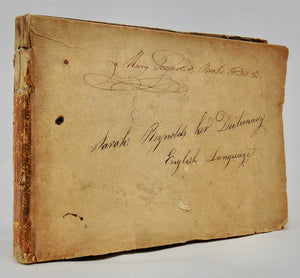 Mary Book
Sarah Reynolds her Dictionary
English Language